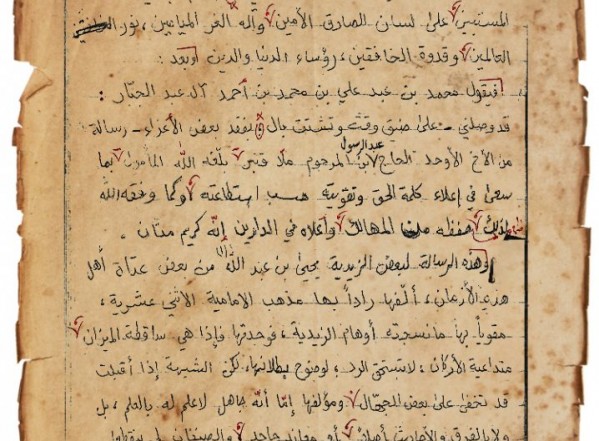 المستبين على لسان الصادق الأمين وآله الغر الميامين، نور
العالمين وقدوة الخافقين، رؤساء الدنيا والدين وبعد:
فيقول محمد بن عبد علي بن محمد بن أحمد آل عبد الجبار:
قد وصلني على ضيق وقت وتشتت بال لفقد بعض الأعزاء رسالة
من الأخ الأوحد الحاج عبد الرسول ابن المرحوم ملا قنبر بلّغه اللّه المأمول بما
سعى في إعلاء كلمة الحق وتقويته حسب استطاعته وكما وفقه اللّه
لذلك حفظه من المهالك وأعلاه في الدارين إنّه كريم منّان.
وهذه الرسالة لبعض الزيدية يحيى بن عبد اللّه من بعض عداة أهل
هذه الأزمان، ألّفها رادّاً بها مذهب الإمامية الاثني عشرية،
مقوياً بها ما نسجته أوهام الزيدية، فوجدتها فإذا هي ساقطة الميزان
متداعية الأركان، لا تستحق الرد؛ لوضوح بطلانها، لكن الشبهة إذا أقبلت
قد تخفى على بعض الجهّال ومؤلفها إمّا أنّه جاهل لا علم له بالعلم، بل
ولا بالفرق والأحاديث أصلاً أو معاند جاحد